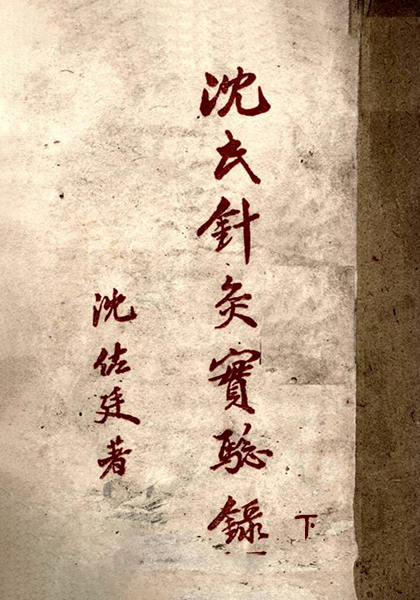 沈氏針灸實驗錄
下
沈佐廷著